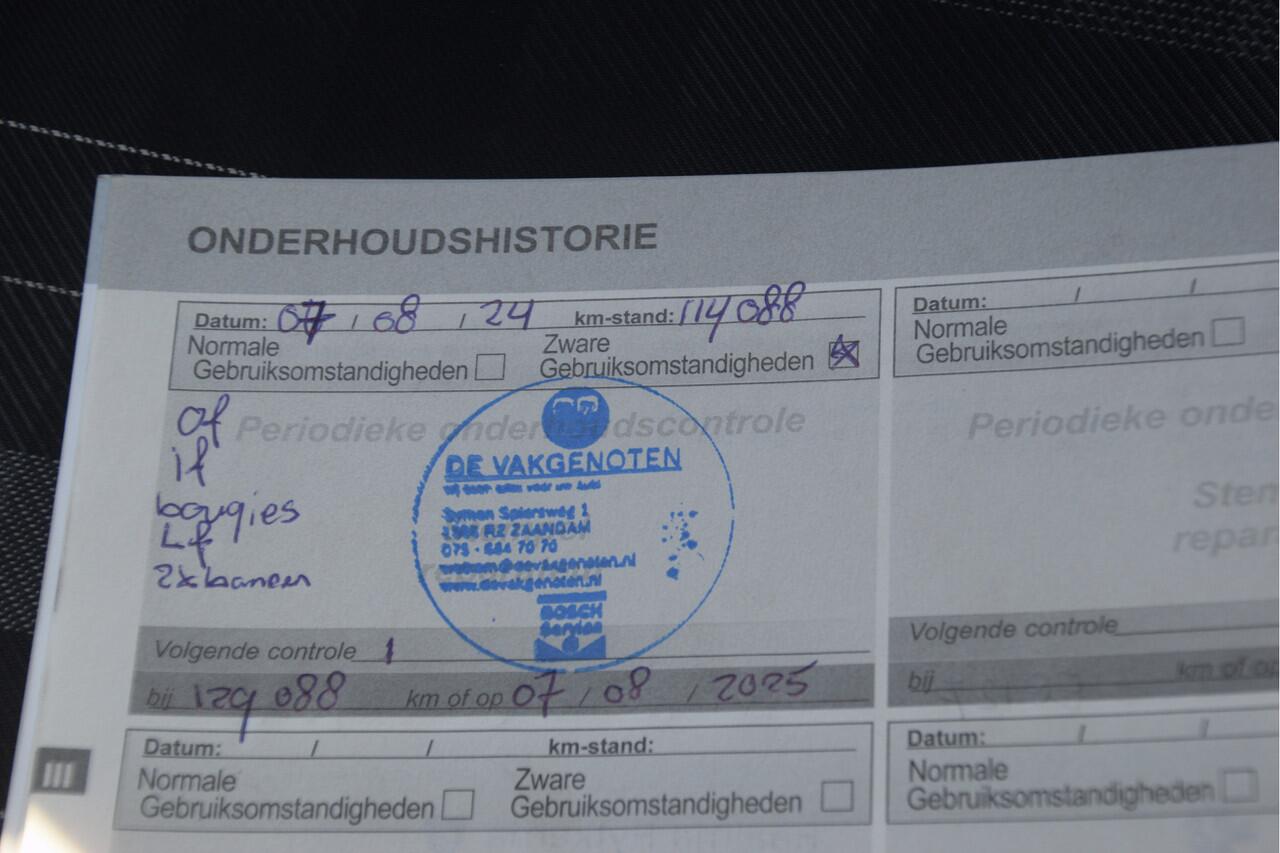 ONDERHOUDSHISTORIE
Datum: 07 / 08 / 24 km-stand: 114 088
Normale Gebruiksomstandigheden
Zware Gebruiksomstandigheden
Periodieke onderhoudscontrole
of
if
bougies
Lf
2x banden
DE VAKGENOTEN
Symon Spiersweg 1
RZ ZAANDAM
075 - 684 70 70
www.devakgenoten.nl
BOSCH
Service
Volgende controle 1
bij 129 088 km of op 07 / 08 / 2025
Datum: / /
Normale
Gebruiksomstandigheden
Periodieke onde
Sten
repar
Volgende controle
bij km of op
III
Datum: / / km-stand:
Normale
Gebruiksomstandigheden
Zware
Gebruiksomstandigheden
Datum: / /
Normale
Gebruiksomstandigheden